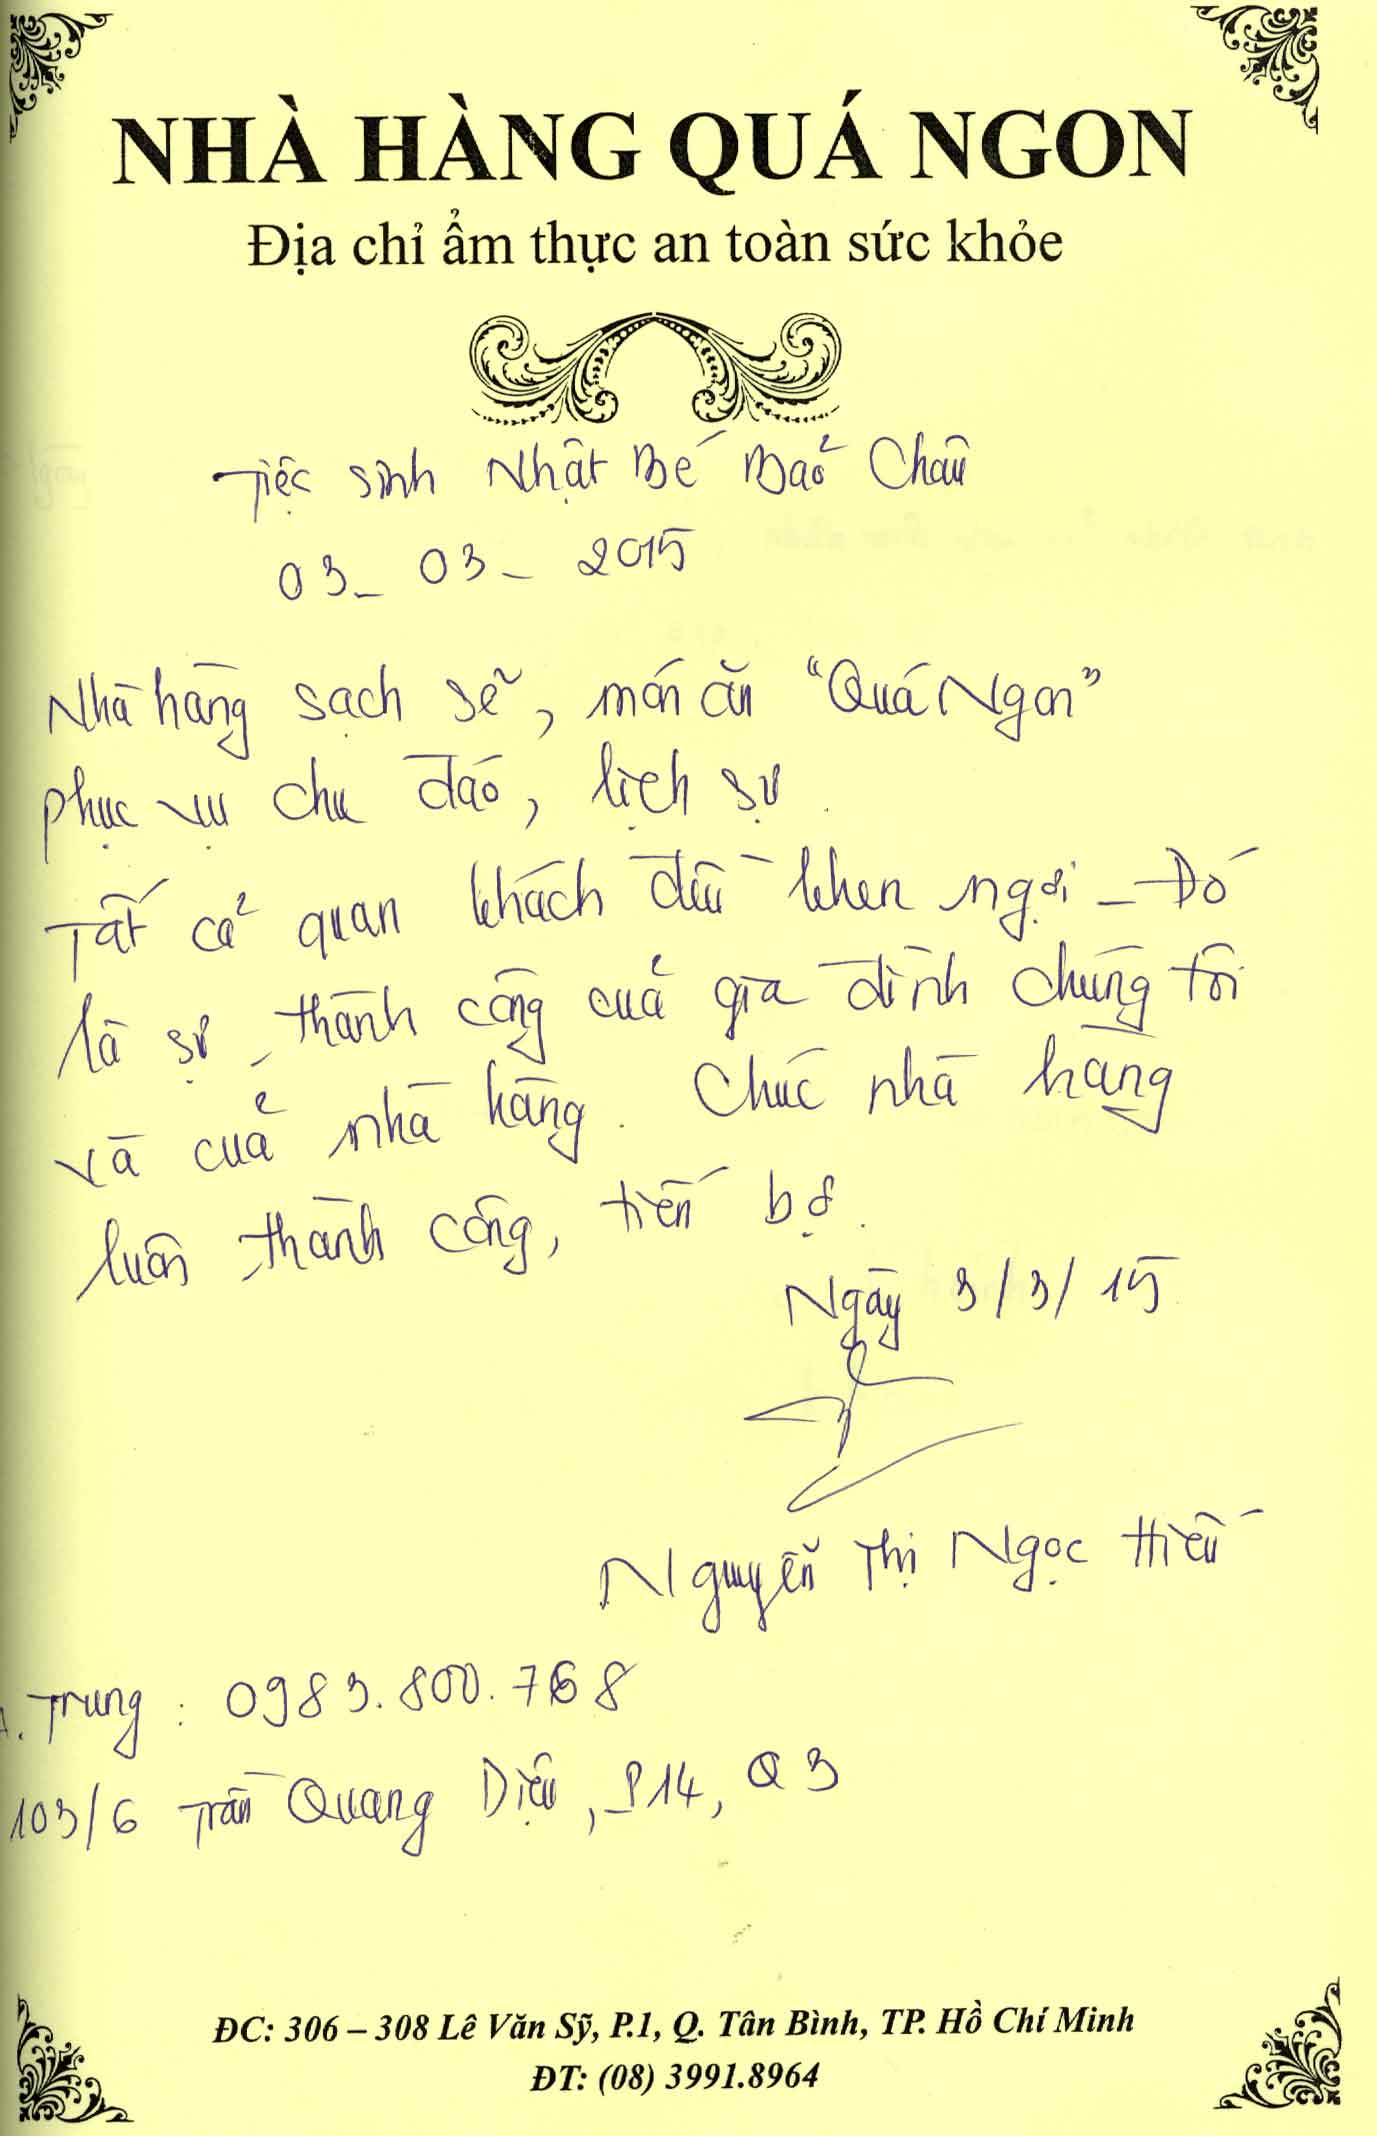 NHÀ HÀNG QUÁ NGON
Địa chỉ ẩm thực an toàn sức khỏe
Tiệc sinh Nhật Bé Bảo Châu
03_ 03_ 2015
Nhà hàng sạch sẽ, món ăn "Quá Ngon"
phục vụ chu đáo, lịch sự.
Tất cả quan khách đều khen ngợi - Đó
là sự thành công của gia đình chúng tôi
và của nhà hàng. Chúc nhà hàng
luôn thành công, tiến bộ.
Ngày 3/3/15
Nguyễn Thị Ngọc Hiếu
A. Trung : 0983.800.768
103/6 Trần Quang Diệu, P14, Q3
ĐC: 306 – 308 Lê Văn Sỹ, P.1, Q. Tân Bình, TP. Hồ Chí Minh
ĐT: (08) 3991.8964